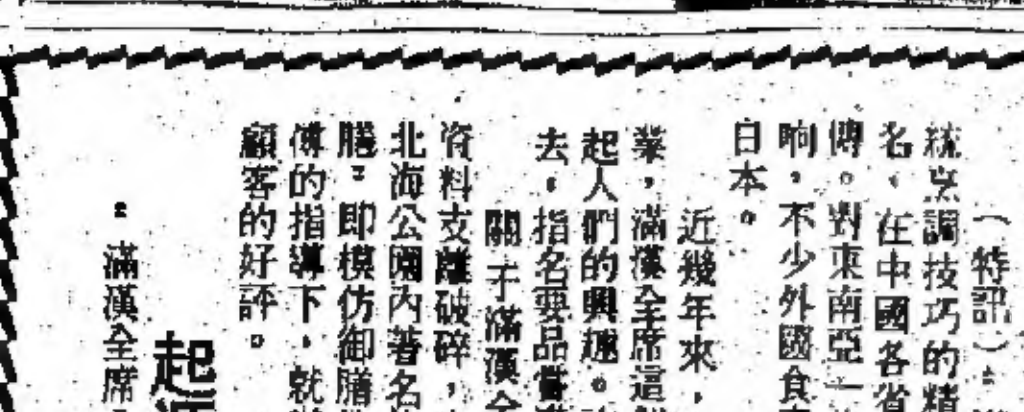 （特訊）
統烹調技巧的精
名，在中國各省
傳。對東南亞一
响，不少外國食
日本。
近幾年來，
業，滿漢全席這
起人們的興趣。
去，指名要品嘗
關于滿漢全
資料支離破碎，
北海公園內著名
膳，即模仿御膳
傅的指導下，就
顧客的好評。
起源
滿漢全席